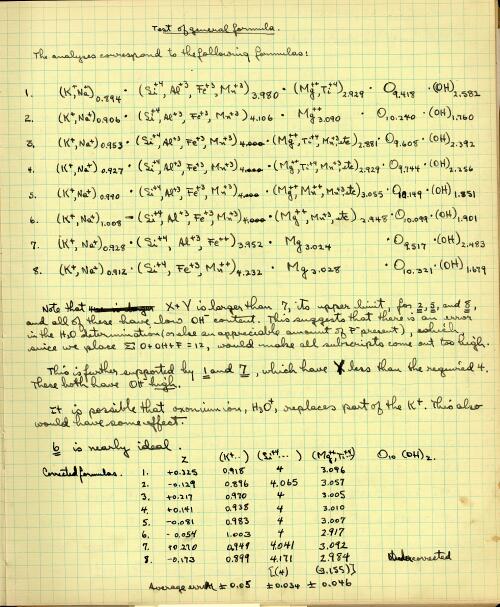 Test of general formula.
The analyses correspond to the following formulas:
1. (K⁺,Na⁺)0.894 · (Si⁺⁴, Al⁺³, Fe⁺³, Mn⁺³)3.980 · (Mg⁺⁺, Ti⁺⁴)2.929 · O9.418 · (OH)2.582
2. (K⁺,Na⁺)0.906 · (Si⁺⁴, Al⁺³, Fe⁺³, Mn⁺³)4.106 · Mg⁺⁺3.090 · O10.240 · (OH)1.760
3. (K⁺,Na⁺)0.953 · (Si⁺⁴, Al⁺³, Fe⁺³, Mn⁺³)4.000 · (Mg⁺⁺, Ti⁺⁴, Mn⁺³, etc)2.881 · O9.608 · (OH)2.392
4. (K⁺,Na⁺)0.927 · (Si⁺⁴, Al⁺³, Fe⁺³, Mn⁺³)4.000 · (Mg⁺⁺, Ti⁺⁴, Mn⁺³, etc)2.929 · O9.744 · (OH)2.256
5. (K⁺,Na⁺)0.990 · (Si⁺⁴, Al⁺³, Fe⁺³, Mn⁺³)4.000 · (Mg⁺⁺, Mn⁺⁺, Mn⁺³, etc)3.055 · O10.149 · (OH)1.851
6. (K⁺,Na⁺)1.008 – (Si⁺⁴, Al⁺³, Fe⁺³, Mn⁺³)4.000 · (Mg⁺⁺, Mn⁺³, etc)2.948 · O10.099 · (OH)1.901
7. (K⁺,Na⁺)0.928 · (Si⁺⁴, Al⁺³, Fe⁺⁺)3.952 · Mg3.024 · O9.517 · (OH)2.483
8. (K⁺,Na⁺)0.912 · (Si⁺⁴, Fe⁺³, Mn⁺⁺)4.232 · Mg3.028 · O10.321 · (OH)1.679
Note that X+Y is larger than 7, its upper limit, for 2, 5, and 8,
and all of these have low OH⁻ content. This suggests that there is an error
in the H₂O determination (or else an appreciable amount of F⁻ present), which,
since we place Σ O+OH+F = 12, would make all subscripts come out too high.
This is further supported by 1 and 7, which have Y less than the required 4.
These both have OH⁻ high.
It is possible that oxonium ion, H₃O⁺, replaces part of the K⁺. This also
would have some effect.
6 is nearly ideal.
z (K⁺..) (Si⁺⁴...) (Mg⁺⁺, Ti⁺⁴) O₁₀ (OH)₂.
Corrected formulas. 1. +0.325 0.918 4 3.096
2. -0.129 0.896 4.065 3.057
3. +0.217 0.970 4 3.005
4. +0.141 0.938 4 3.010
5. -0.081 0.983 4 3.007
6. -0.054 1.003 4 2.917
7. +0.270 0.949 4.041 3.092
8. -0.173 0.899 4.171 2.984
[(4) (3.155)]
Average error ± 0.05 ± 0.034 ± 0.046